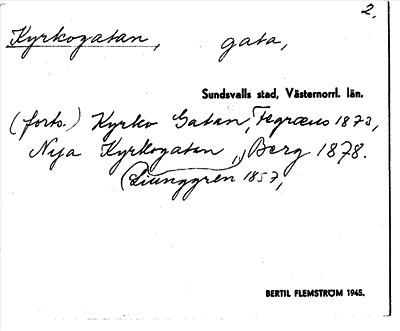 2.
Kyrkogatan, gata,
Sundsvalls stad, Västernorrl. län.
(forts.) Kyrko Gatan, Tegræus 1873,
Nya Kyrkogatan,, Berg 1878.
(Ljunggren 1857,
BERTIL FLEMSTRÖM 1945.